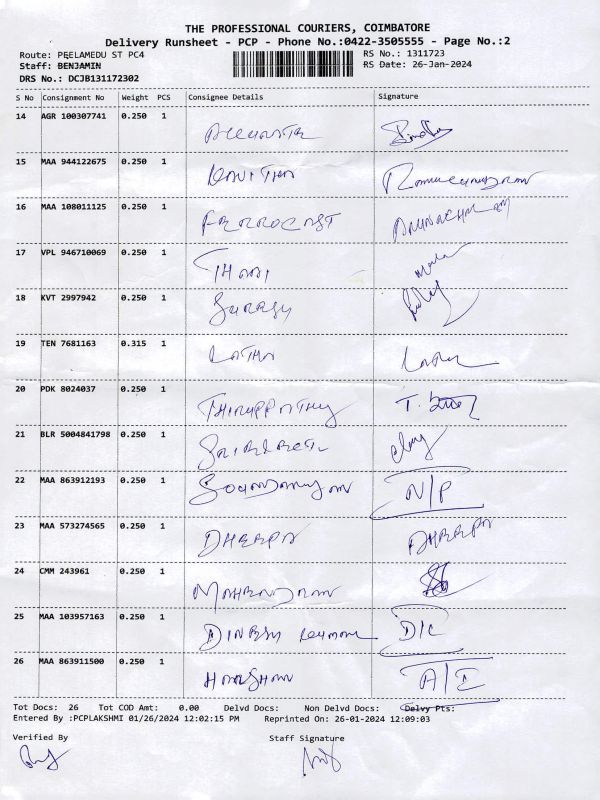 THE PROFESSIONAL COURIERS, COIMBATORE
Delivery Runsheet - PCP - Phone No.:0422-3505555 - Page No.:2
Route: PEELAMEDU ST PC4 RS No.: 1311723
Staff: BENJAMIN RS Date: 26-Jan-2024
DRS No.: DCJB131172302
S No Consignment No Weight PCS Consignee Details Signature
14 AGR 100307741 0.250 1
15 MAA 944122675 0.250 1 KAVITHA
16 MAA 108011125 0.250 1 ARUNACHALAM
17 VPL 946710069 0.250 1 THARI
18 KVT 2997942 0.250 1 SURESH
19 TEN 7681163 0.315 1 LATHA Latha
20 PDK 8024037 0.250 1 THIRUPPATHY T.
21 BLR 5004841798 0.250 1
22 MAA 863912193 0.250 1 N/P
23 MAA 573274565 0.250 1 DHEEPA DHEEPA
24 CMM 243961 0.250 1 MAHENDRAN
25 MAA 103957163 0.250 1 DINESH KUMAR D/L
26 MAA 863911500 0.250 1 HARISHAN A/I
Tot Docs: 26 Tot COD Amt: 0.00 Delvd Docs: Non Delvd Docs: Delvy Pts:
Entered By :PCPLAKSHMI 01/26/2024 12:02:15 PM Reprinted On: 26-01-2024 12:09:03
Verified By Staff Signature